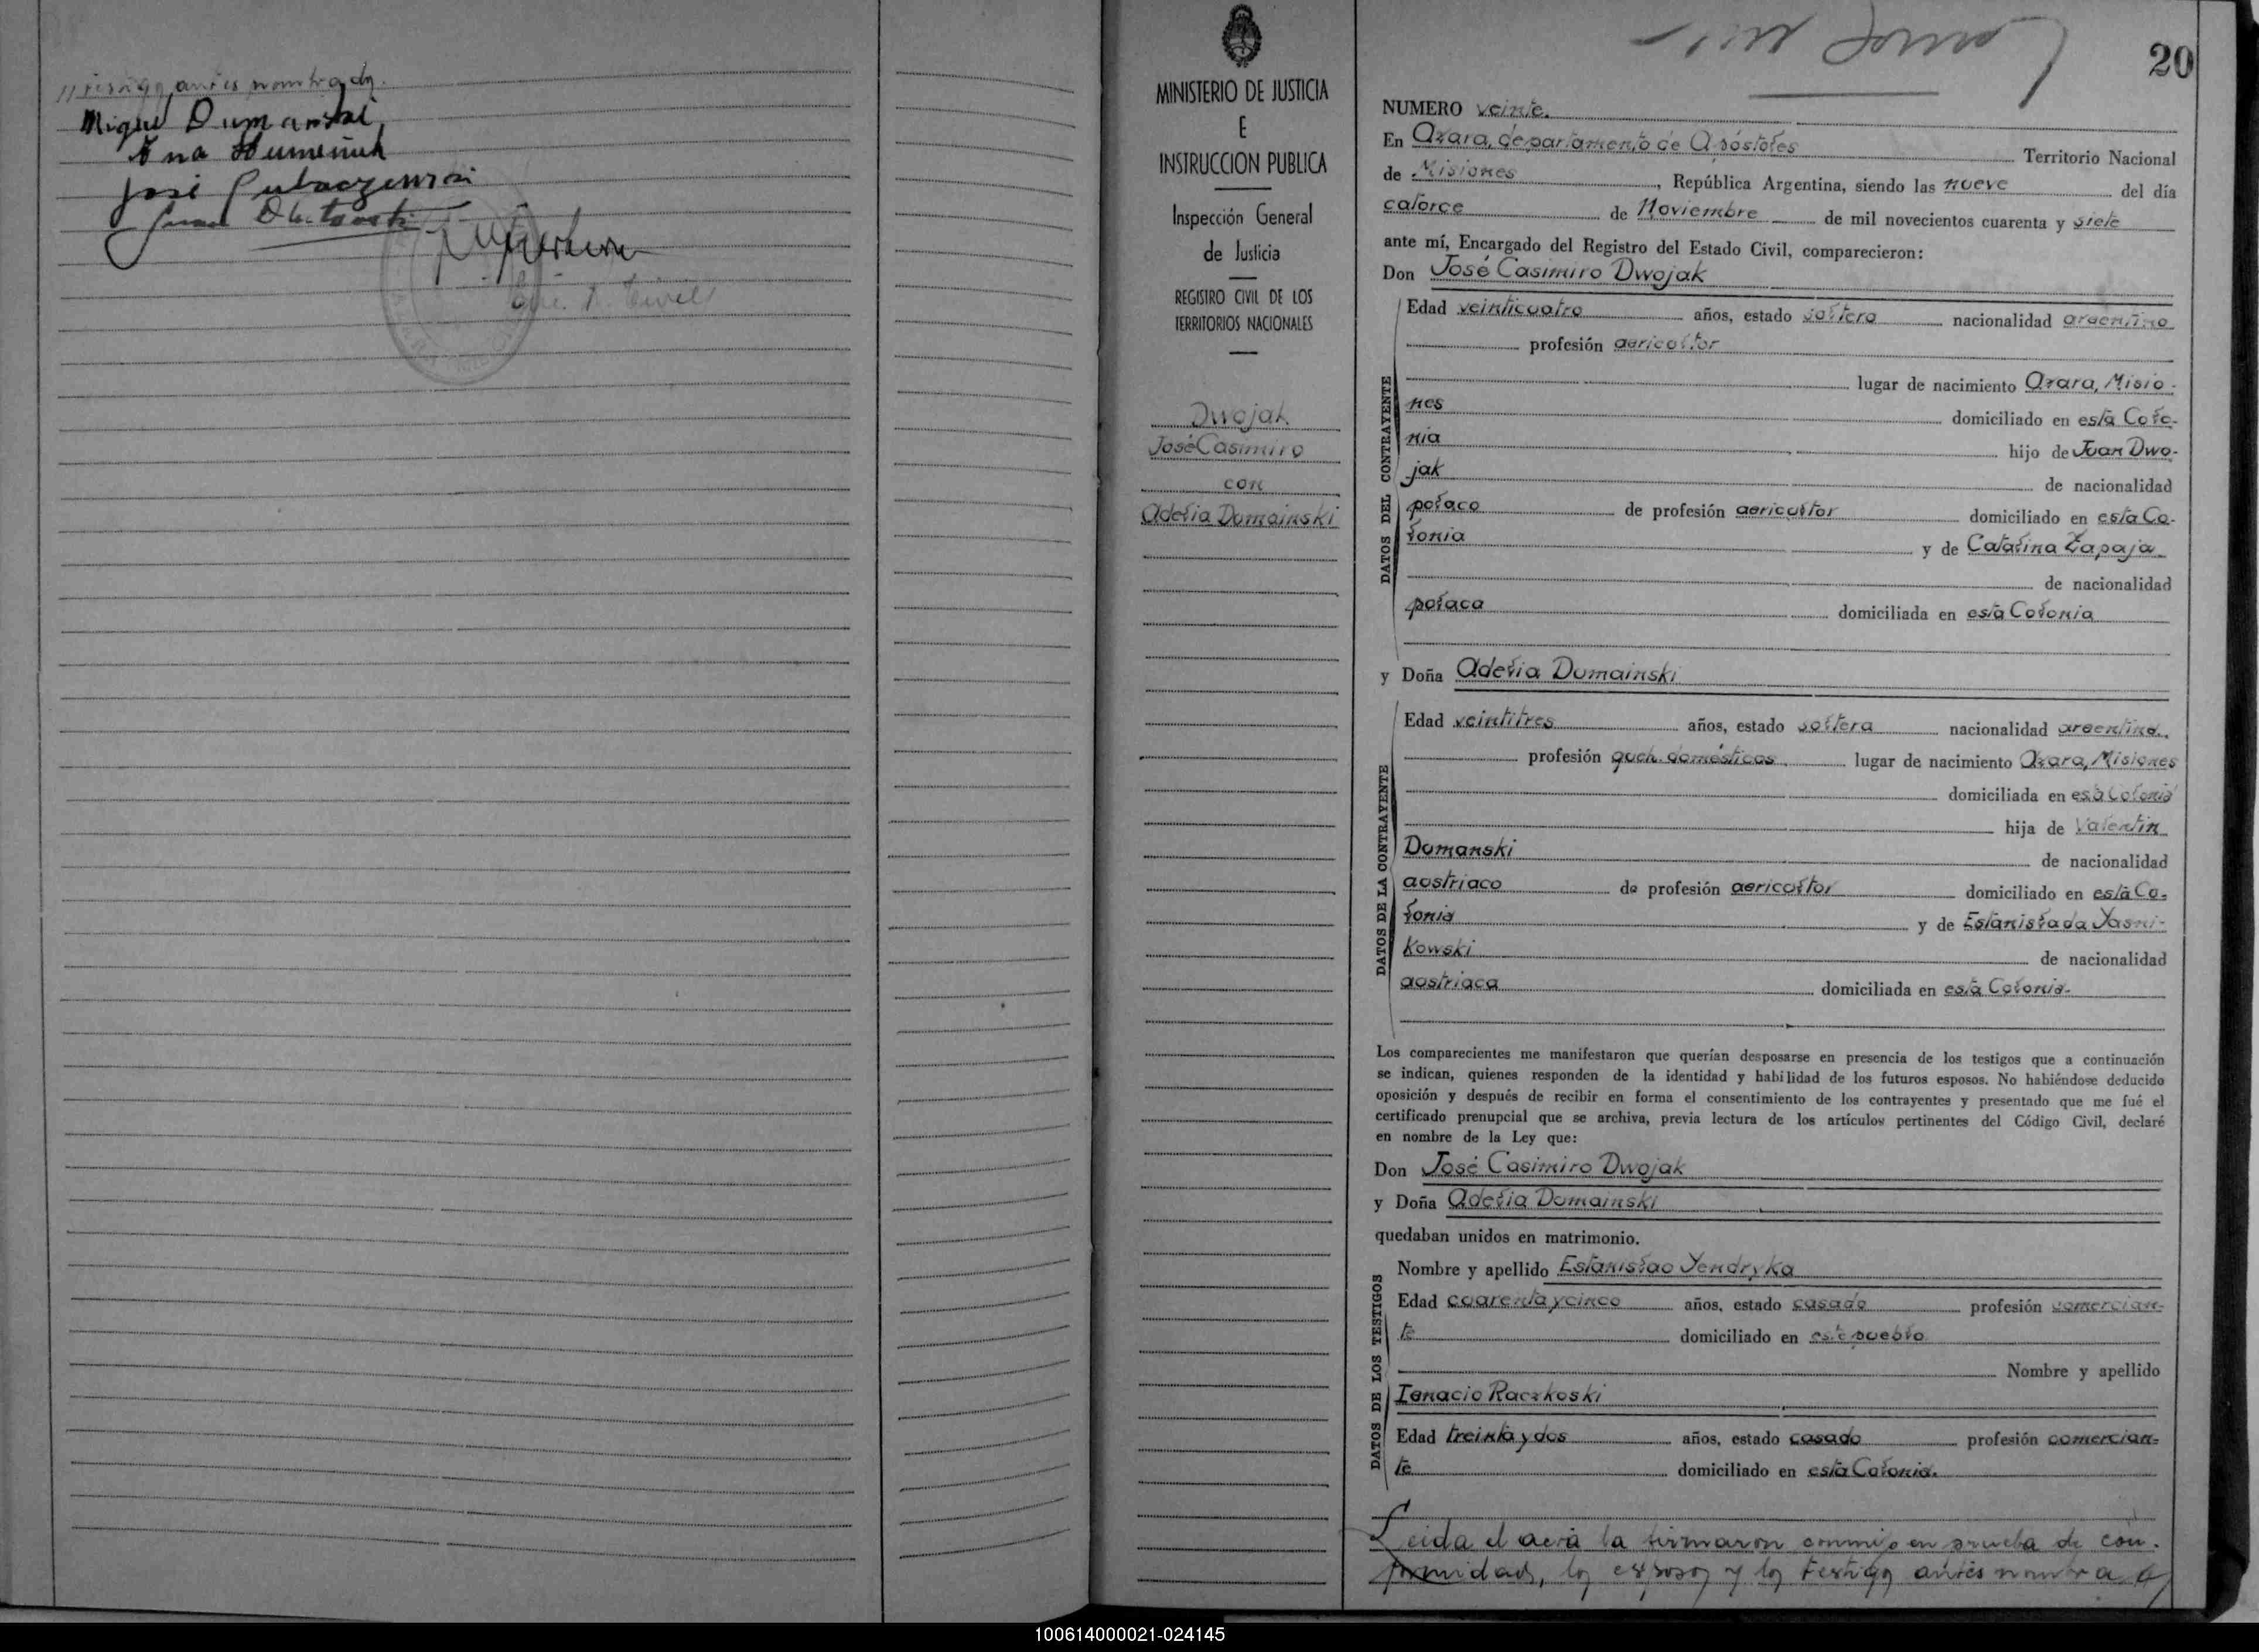 testigos antes nombrados.
Miguel Dumanski
Ana
José
MINISTERIO DE JUSTICIA
E
INSTRUCCION PUBLICA
Inspección General
de Justicia
REGISTRO CIVIL DE LOS
TERRITORIOS NACIONALES
Dwojak
José Casimiro
con
Adelia Domainski
20
NUMERO veinte.
En Azara, departamento de Apóstoles Territorio Nacional
de Misiones, República Argentina, siendo las nueve del día
catorce de Noviembre de mil novecientos cuarenta y siete
ante mí, Encargado del Registro del Estado Civil, comparecieron:
Don José Casimiro Dwojak
DATOS DEL CONTRAYENTE
Edad veinticuatro años, estado soltero nacionalidad argentino
profesión agricultor
lugar de nacimiento Azara, Misio-
nes domiciliado en esta Colo-
nia hijo de Juan Dwo-
jak de nacionalidad
polaco de profesión agricultor domiciliado en esta Co-
lonia y de Catalina Zapaja
de nacionalidad
polaca domiciliada en esta Colonia
y Doña Adelia Dumainski
DATOS DE LA CONTRAYENTE
Edad veintitres años, estado soltera nacionalidad argentina.
profesión queh. domésticos lugar de nacimiento Azara, Misiones
domiciliada en esta Colonia
hija de Valentin
Dumanski de nacionalidad
austriaco de profesión agricultor domiciliado en esta Co-
lonia y de Estanislada Yasni-
kowski de nacionalidad
austriaca domiciliada en esta Colonia.
Los comparecientes me manifestaron que querían desposarse en presencia de los testigos que a continuación
se indican, quienes responden de la identidad y habilidad de los futuros esposos. No habiéndose deducido
oposición y después de recibir en forma el consentimiento de los contrayentes y presentado que me fué el
certificado prenupcial que se archiva, previa lectura de los artículos pertinentes del Código Civil, declaré
en nombre de la Ley que:
Don José Casimiro Dwojak
y Doña Adelia Dumainski
quedaban unidos en matrimonio.
DATOS DE LOS TESTIGOS
Nombre y apellido Estanislao Yendryka
Edad cuarenta y cinco años, estado casado profesión comercian-
te domiciliado en este pueblo
Nombre y apellido
Ignacio Raczkoski
Edad treinta y dos años, estado casado profesión comercian-
te domiciliado en esta Colonia.
Leida el acta la firmaron conmigo en prueba de con-
formidad, los esposos y los testigos antes nombrados
100614000021-024145